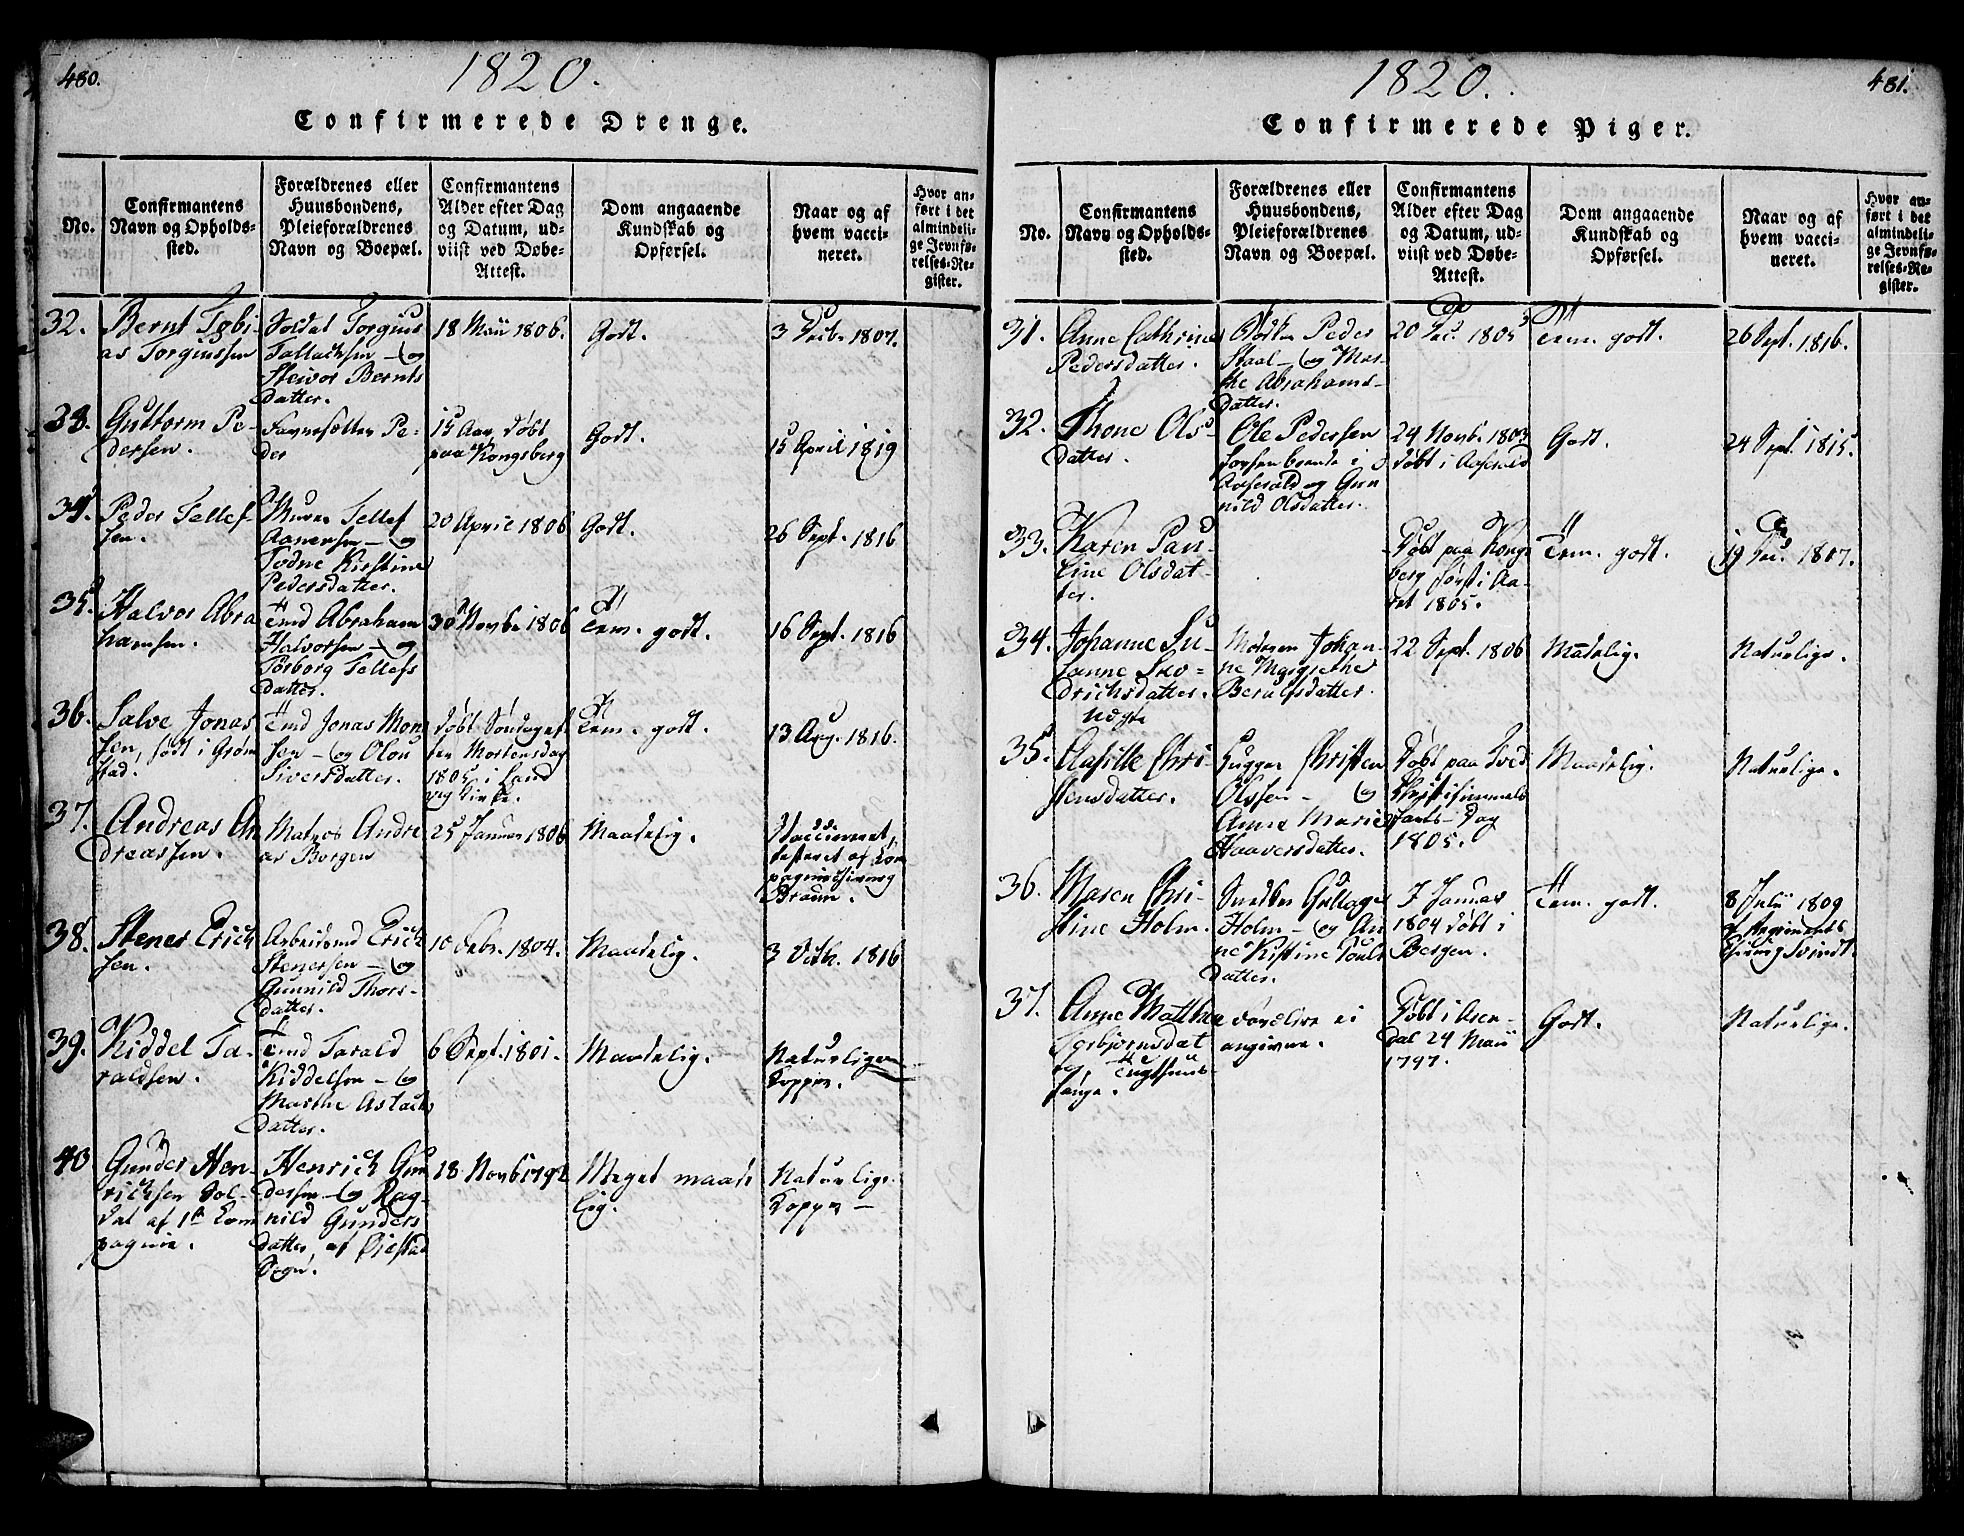 480.
1820.
Confirmerede Drenge.
No.
Confirmantens
Navn og Opholds-
sted.
Forældrenes eller
Huusbondens,
Pleieforældrenes
Navn og Boepæl.
Confirmantens
Alder efter Dag
og Datum, ud-
viist ved Døbe-
Attest.
Dom angaaende
Kundskab og
Opførsel.
Naar og af
hvem vacci-
neret.
Hvor an-
ført i det
almindeli-
ge Jevnfø-
relses-Re-
gister.
32.
Bernt Tobi-
as Torgiussen
Soldat Torgius
Tallachsen - og
Steivor Bernts
datter.
18 Maii 1806.
Godt.
3 Decbr. 1807.
33.
Guttorm Pe-
dersen.
Pe-
der
15 Aar døbt
paa Kongsberg
Godt.
15 April 1819
34.
Peder Tellef-
sen.
Murer Tellef
Aanersen - og
Todne Kirstine
Pedersdatter.
20 April 1806
Godt.
26 Sept. 1816
35.
Halvor Abra
hamsen.
Tmd Abraham
Halvorsen - og
Torborg Tellefs
datter.
30 Novbr 1806
Tem. godt.
16 Sept. 1816
36.
Salve Jonas
sen, født i Grom
stad.
Tmd Jonas Mon
sen - og Olou
Siversdatter.
døbt Søndagen
før Mortensdag
1805 i Land
vig Kirke.
Tem. godt.
13 Aug. 1816.
37.
Andreas An
dreassen.
Matros Andre
as Borgen
25 Januar 1806
Maadelig.
Vaccineret,
testeret af Com
pagniechirurg
Braun.
38.
Stener Erich
sen.
Arbeidsmd Erich
Stenersen - og
Gunnild Thors-
datter.
10 Febr. 1804.
Maadelig.
3 Octbr. 1816
39.
Kiddel Ta-
raldsen.
Tmd Tarald
Kiddelsen - og
Marthe Astachs
datter.
6 Sept. 1801.
Maadelig.
Naturlige
Kopper.
40
Gunder Hen-
richsen Sol-
dat af 1te Com
pagnie.
Henrich Gun
dersen - og Rag-
nild Gunders
datter, af Øiestad
Sogn.
28 Novb 1792
Meget maade
lig.
Naturlige
Kopper -
481.
1820.
Confirmerede Piger.
No.
Confirmantens
Navn og Opholds-
sted.
Forældrenes eller
Huusbondens,
Pleieforældrenes
Navn og Boepæl.
Confirmantens
Alder efter Dag
og Datum, ud-
viist ved Døbe-
Attest.
Dom angaaende
Kundskab og
Opførsel.
Naar og af
hvem vacci-
neret.
Hvor an-
ført i det
almindeli-
ge Jevnfø-
relses-Re-
gister.
31.
Anne Cathrine
Pedersdatter.
Peder
Staal - og Mar-
the Abrahams-
datter.
20 Dec. 1805
Tem. godt.
26 Sept. 1816.
32.
Thone Ols-
datter.
Ole Pedersen
boende i
Aaserald og Gun
nild Olsdatter.
24 Novb. 1803
døbt i Aaserald
Godt.
24 Sept. 1815.
33.
Karen Pau-
line Olsdat-
ter.
Døbt paa Kongs
berg først i Aa-
ret 1805.
Tem. godt.
19 Dec. 1807.
34.
Johanne Su-
sanne
drichsdatter.
Moderen Johan-
ne Margrethe
Berulfsdatter.
22 Sept. 1806
Madelig.
Naturlige.
35.
Aasille Chri-
stensdatter.
Hugger Christen
Olssen - og
Anne Marie
Haaversdatter.
Døbt paa Tved
Christi himmel-
farts-Dag
1805.
Maadelig.
Naturlige.
36.
Maren Chri-
stine Holm.
Snedker Gullage
Holm - og An
ne Kistine Pouls
datter.
7 Januar
1804 døbt i
Bergen.
Tem. godt.
8 Julii 1809
af Regiments
Chirurg
37.
Anne Malthea
Asbjørnsdat
ter, Tugthuus-
fange.
Forældrene ei
angivne.
Døbt i Aren-
dal 24 Maii
1797.
Godt.
Naturlige.